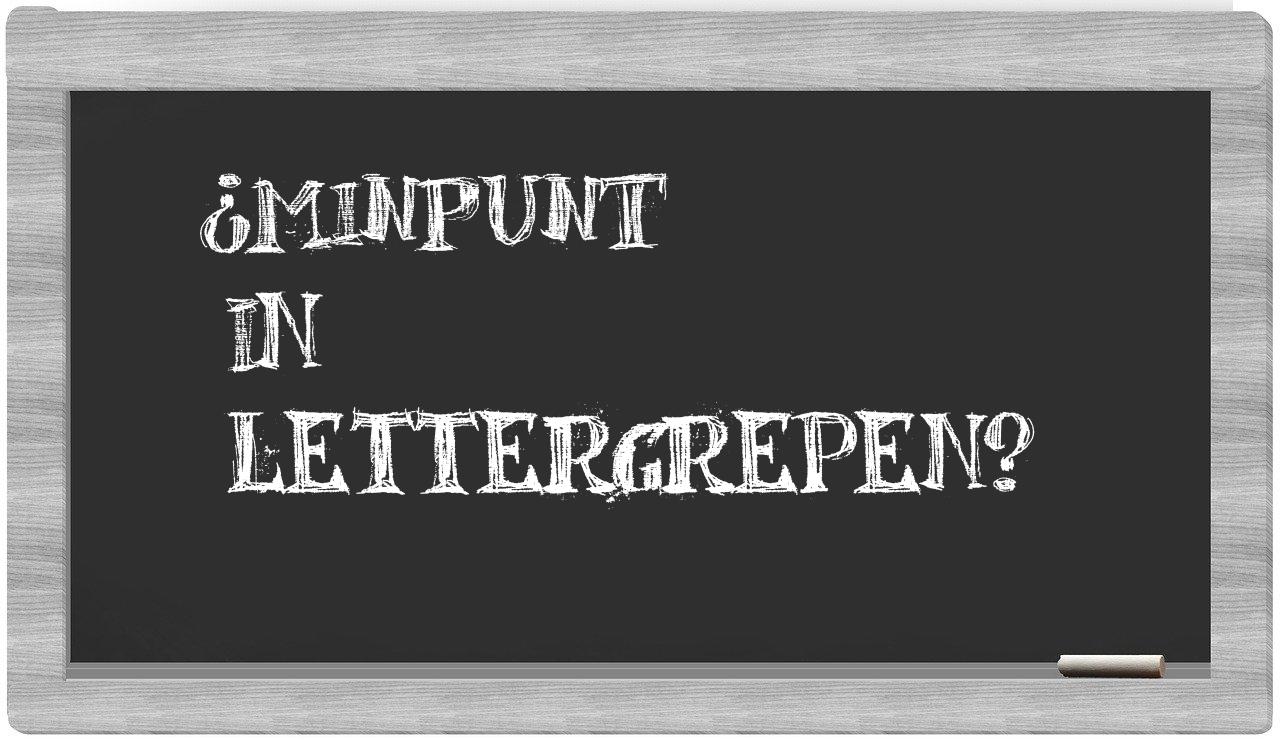 ¿MINPUNT
IN
LETTERGREPEN?